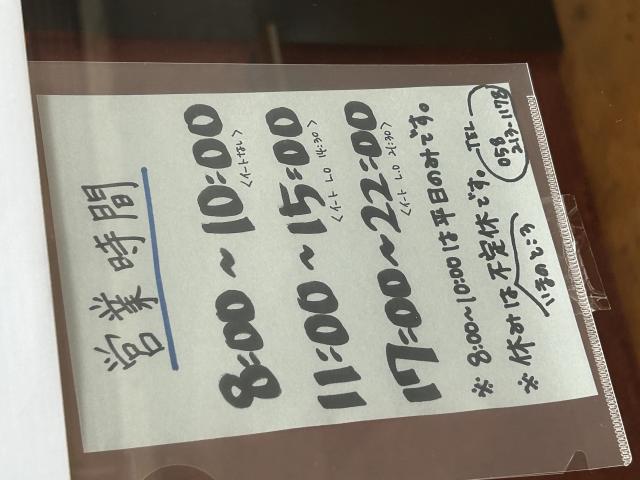 営業時間
8:00~10:00
<イートなし>
11:00~15:00
<イート L.O 14:30>
17:00~22:00
<イート L.O 21:30>
※ 8:00~10:00は平日のみです。
※ 休みは不定休です。
いまのところ
TEL
058
213-1178